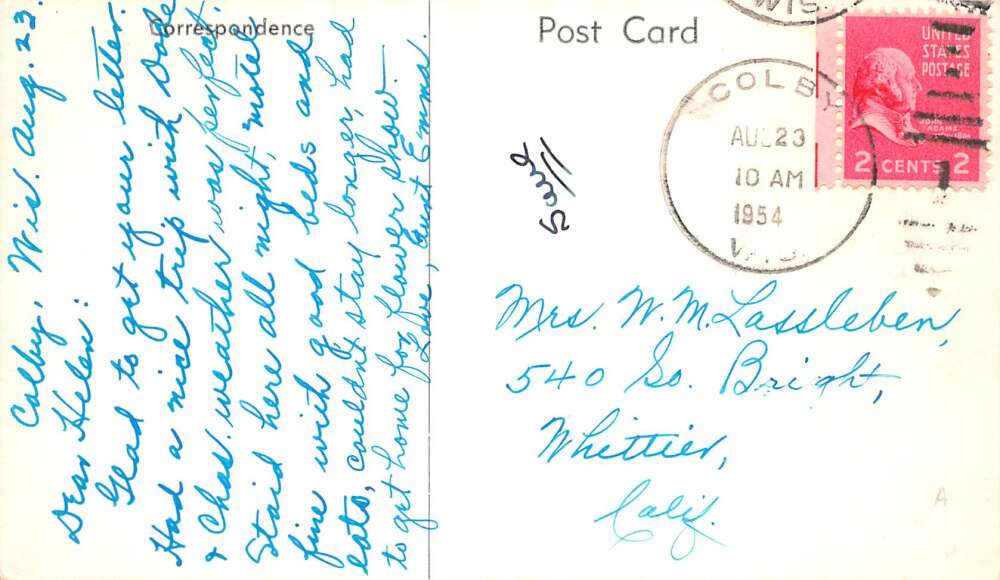 Correspondence
Post Card
Colby, Wis. Aug. 23.
Dear Helen:
Glad to get your letter.
Had a nice trip with Dode
& Chas. weather was perfect.
Staid here all night, motel
fine with good beds and
eats, couldn't stay longer, had
to get home for flower show
Love, Aunt Emma.
WIS.
COLBY
AUG 23
10 AM
1954
WIS.
UNITED
STATES
POSTAGE
JOHN
ADAMS
2 CENTS 2
Mrs. W. M. Lassleben,
540 So. Bright,
Whittier,
Calif.
A